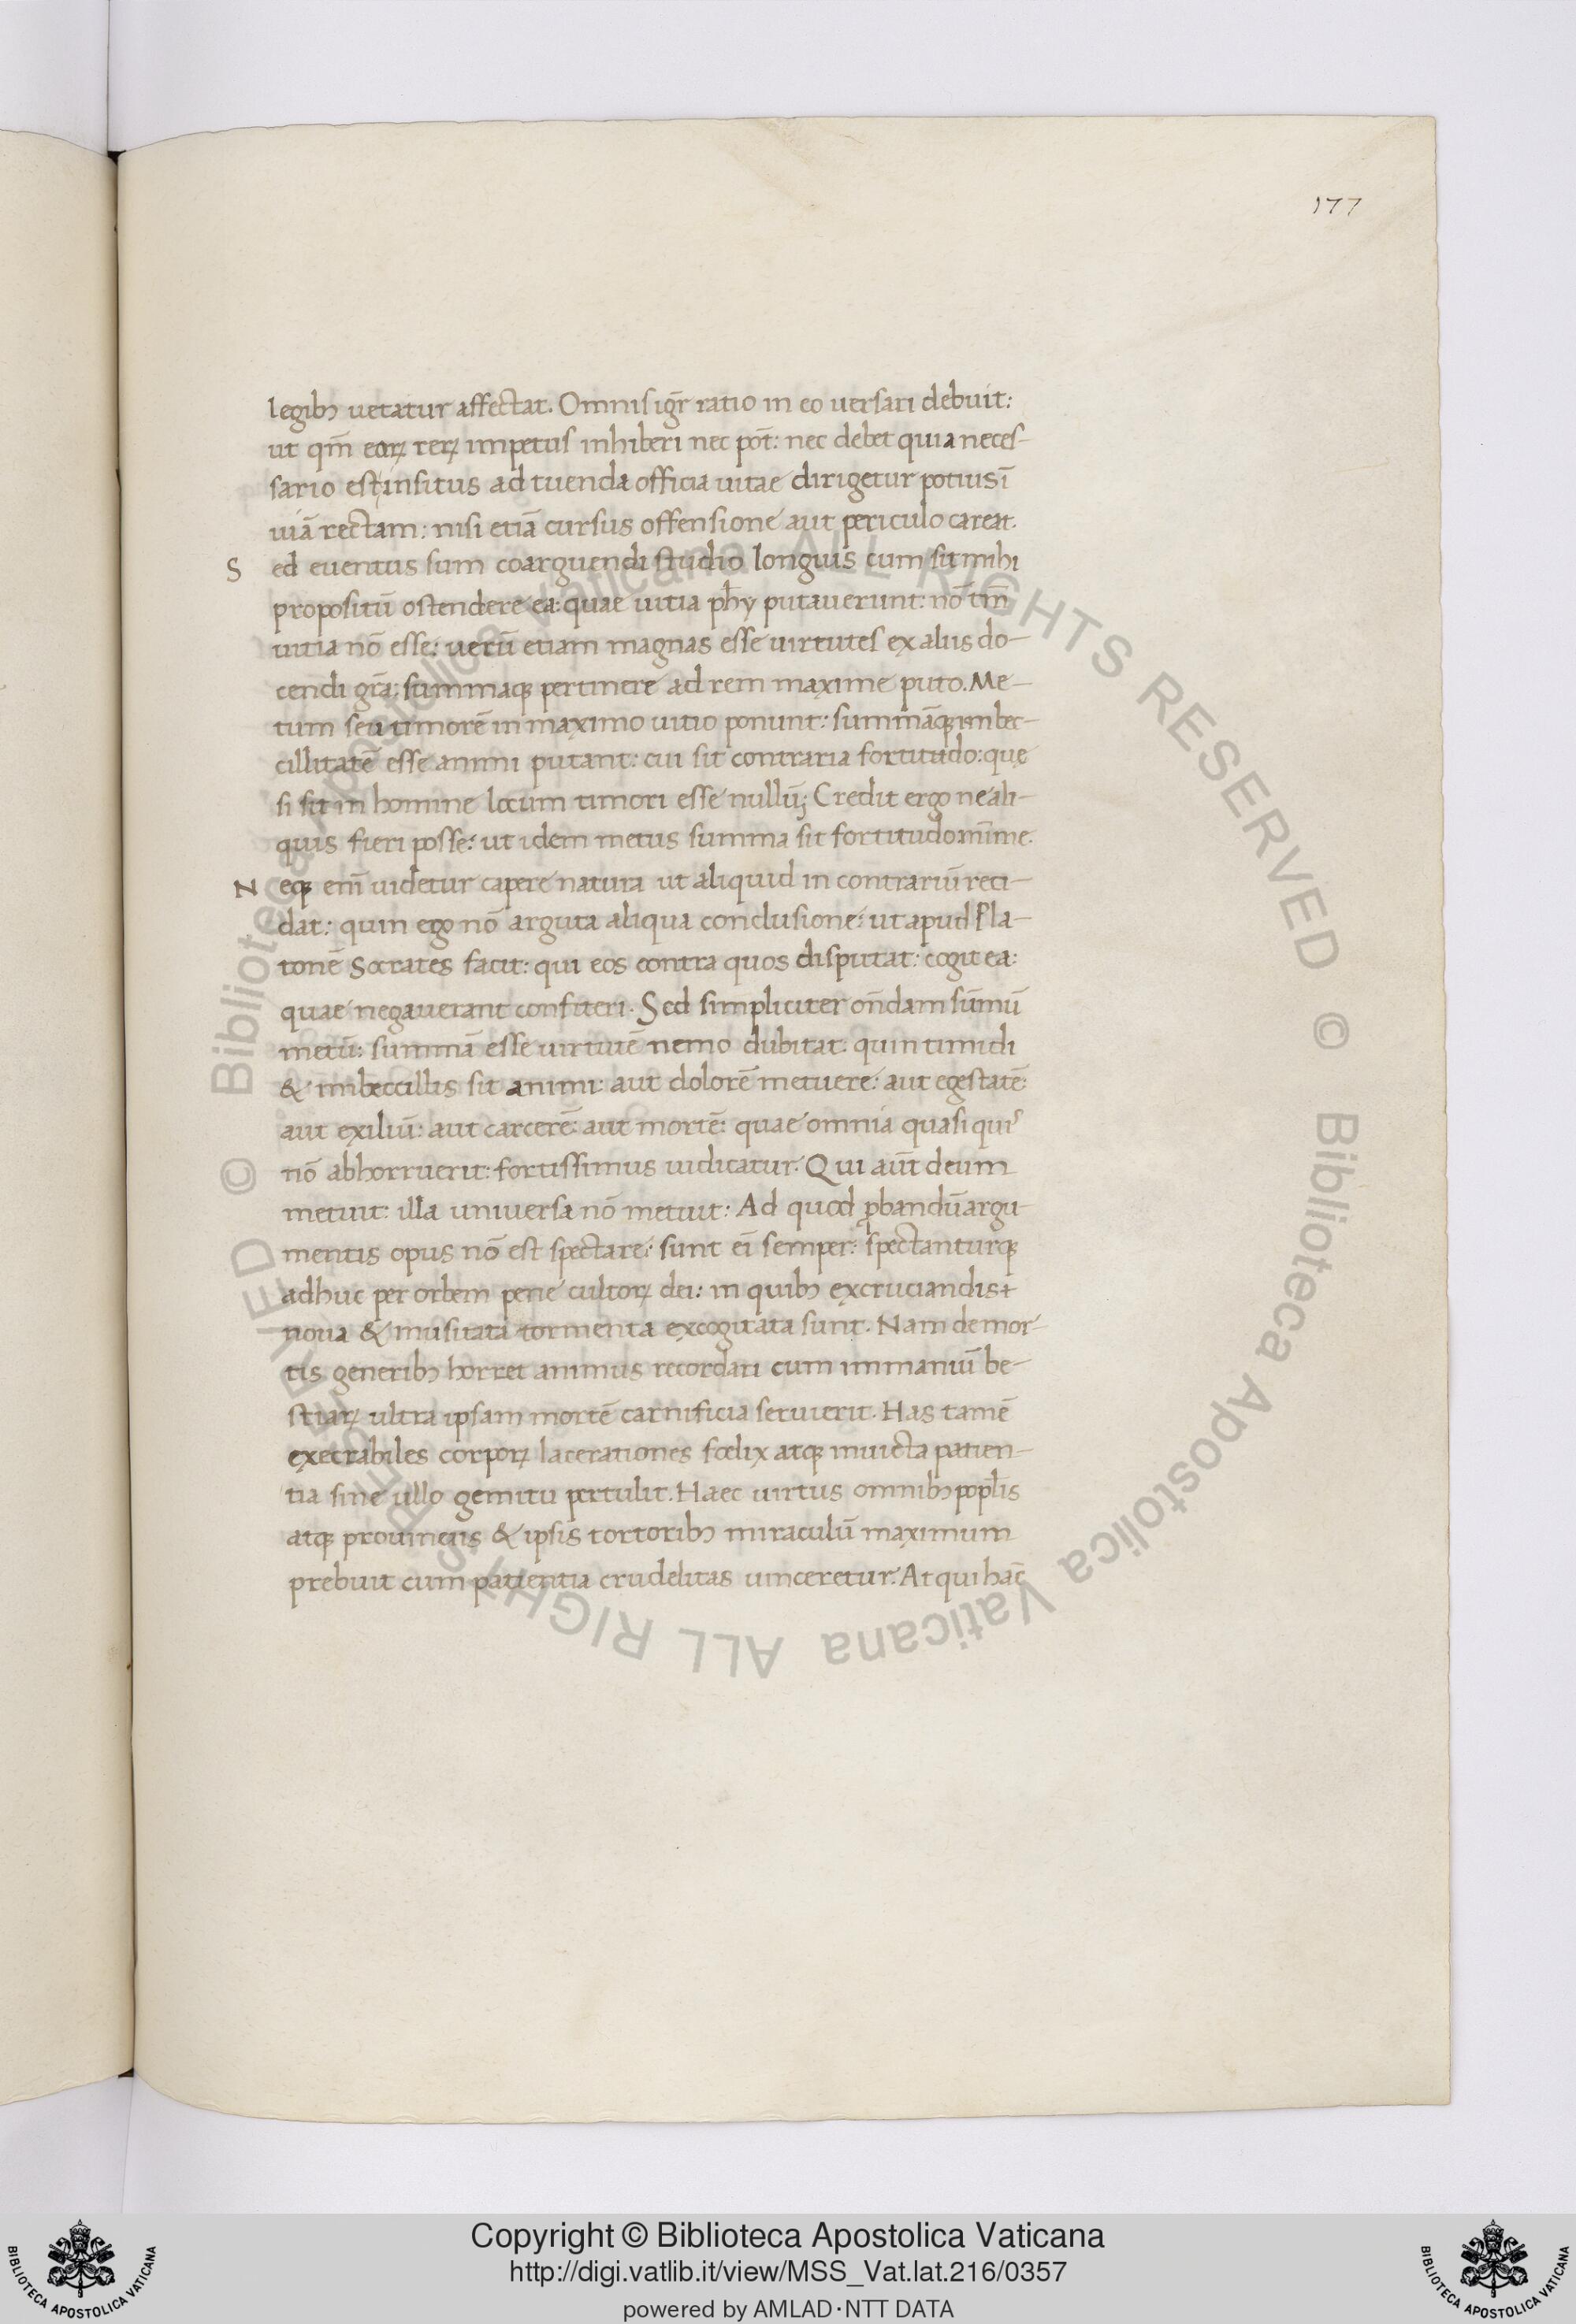 177
legibꝫ uetatur affectat. Omnis igr̄ ratio in eo uersari debuit:
ut qm̄ eoꝝ reꝝ impetus inhiberi nec pōt: nec debet quia neces-
sario est insitus ad tuenda officia uitae dirigetur potius ī
uiā rectam: nisi etiā cursus offensione aut periculo careat.
S ed euentus sum coarguendi studio longius cum sit mihi
propositū ostendere ea: quae uitia phȳ putauerunt: nō tm̄
uitia nō esse: uerū etiam magnas esse uirtutes ex aliis do-
cendi gr̄a: summaqꝫ pertinere ad rem maxime puto. Me-
tum seu timorē in maximo uitio ponunt: summāqꝫ imbec-
cillitatē esse animi putant: cui sit contraria fortitudo: quę
si sit in homine locum timori esse nullū; Credit ergo ne ali-
quis fieri posse: ut idem metus summa sit fortitudo mīme.
N eqꝫ enī uidetur capere natura ut aliquid in contrariū reci-
dat: quin ego nō arguta aliqua conclusione: ut apud Pla-
tonē Socrates facit: qui eos contra quos disputat: cogit ea:
quae negauerant confiteri. Sed simpliciter on̄dam sūmū
metū: summā esse uirtutē nemo dubitat quin timidi
& imbeccillis sit animi: aut dolorē metuere: aut egestatē:
aut exiliū: aut carcerē: aut mortē: quae omnia quasi quis
nō abhorruerit: fortissimus iudicatur. Qui aūt deum
metuit: illa uniuersa nō metuit: Ad quod ꝓbandū argu-
mentis opus nō est spectare: sunt eī semper: spectanturqꝫ
adhuc per orbem pene cultoꝝ dei: in quibꝫ excruciandis
noua & inusitata tormenta excogitata sunt. Nam de mor-
tis generibꝫ horret animus recordari cum immaniū be-
stiaꝝ ultra ipsam mortē carnificia seruierit. Has tamē
execrabiles corpoꝝ lacerationes foelix atqꝫ inuicta patien-
tia sine ullo gemitu pertulit. Haec uirtus omnibꝫ popl̄is
atqꝫ prouinciis & ipsis tortoribꝫ miraculū maximum
prebuit cum patientia crudelitas uinceretur. At qui hāc
© Biblioteca Apostolica Vaticana ALL RIGHTS RESERVED © Biblioteca Apostolica Vaticana ALL RIGHTS RESERVED
Copyright © Biblioteca Apostolica Vaticana
http://digi.vatlib.it/view/MSS_Vat.lat.216/0357
powered by AMLAD·NTT DATA
BIBLIOTECA APOSTOLICA VATICANA
BIBLIOTECA APOSTOLICA VATICANA